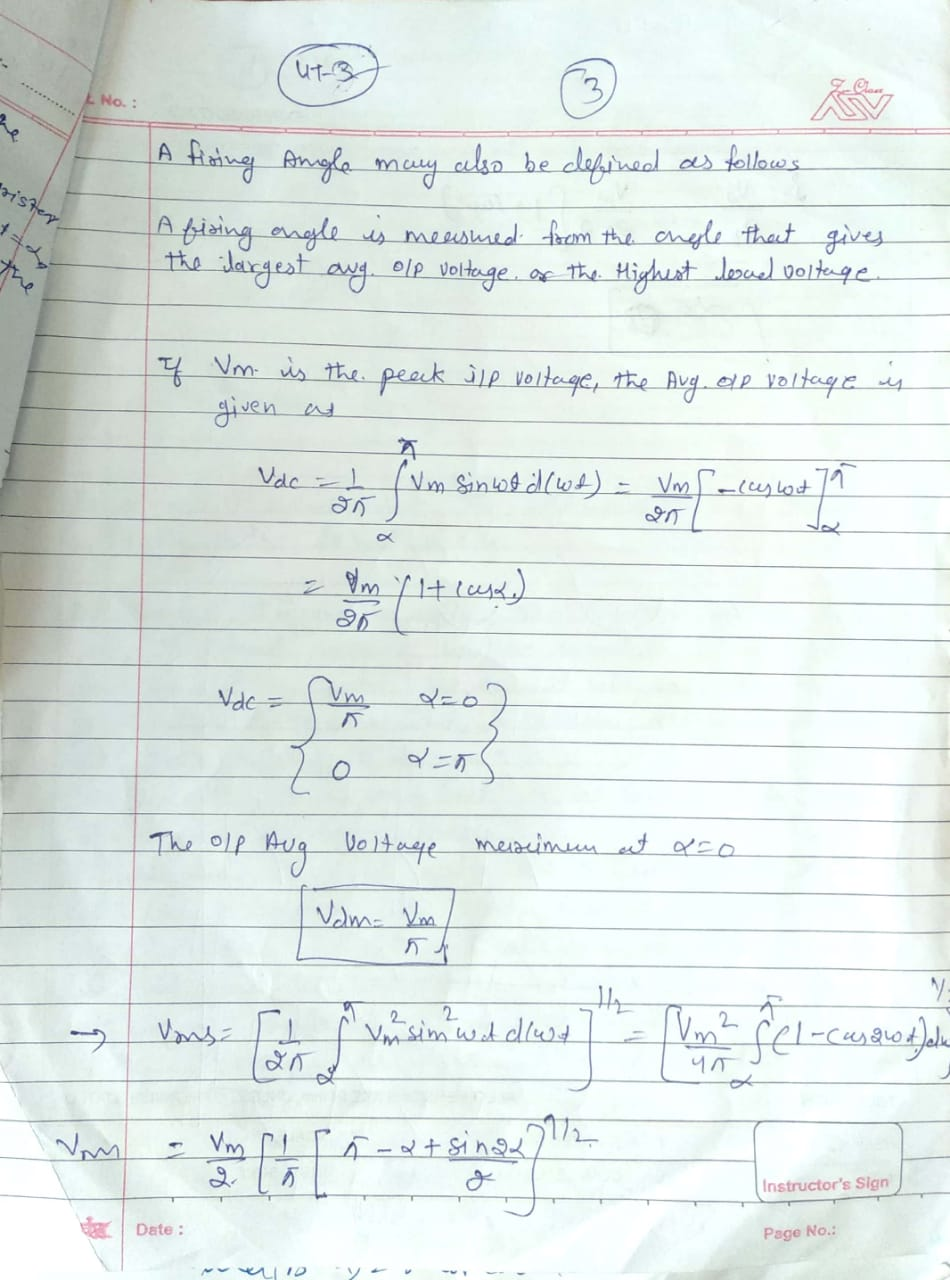 UT-3
3
t. No. :
A firing Angle may also be defined as follows
A firing angle is measured from the angle that gives
the largest avg. o/p voltage. or the Highest load voltage.
If Vm is the peak i/p voltage, the Avg. o/p voltage is
given as
Vdc = 1/2π ∫_α^π Vm sinωt d(ωt) = Vm/2π [-cosωt]_α^π
= Vm/2π (1+cosα)
Vdc = { Vm/π α=0
0 α=π }
The o/p Avg Voltage maximum at α=0
Vdm = Vm/π
→ Vrms = [1/2π ∫_α^π Vm² sin²ωt d(ωt]^1/2 = [Vm²/4π ∫_α^π (1-cos2ωt)dω
Vrms = Vm/2 [1/π [π-α+sin2α/2]^1/2
Instructor's Sign
Date :
Page No.: